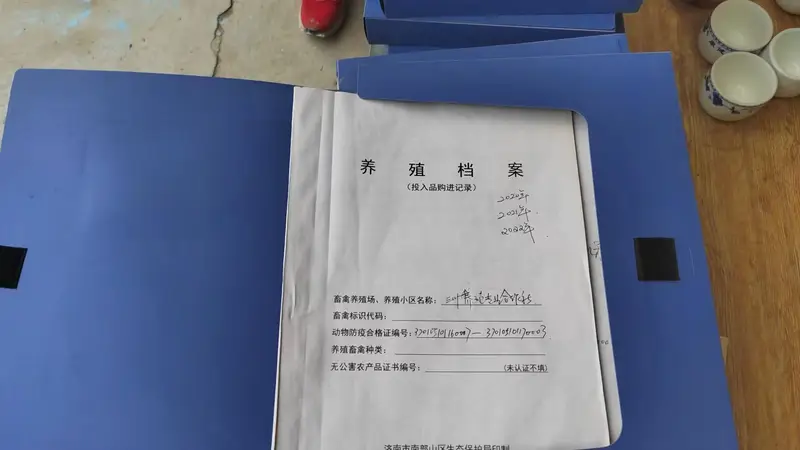 养殖档案
（投入品购进记录）
2020年
2021年
2022年
畜禽养殖场、养殖小区名称：三叶养殖专业合作社
畜禽标识代码：
动物防疫合格证编号：
养殖畜禽种类：
无公害农产品证书编号：（未认证不填）
济南市南部山区生态保护局印制